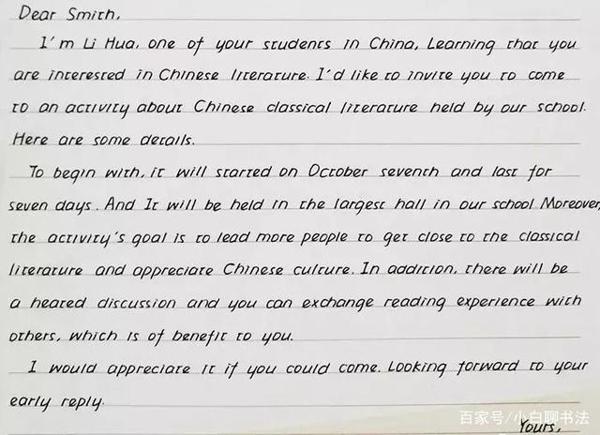 Dear Smith,
I'm Li Hua, one of your students in China, Learning that you
are interested in Chinese literature. I'd like to invite you to come
to an activity about Chinese classical literature held by our school.
Here are some details.
To begin with, it will started on October seventh and last for
seven days. And It will be held in the largest hall in our school Moreover,
the activity's goal is to lead more people to get close to the classical
literature and appreciate Chinese culture. In addition, there will be
a heated discussion and you can exchange reading experience with
others, which is of benefit to you.
I would appreciate it if you could come. Looking forward to your
early reply.
Yours,
百家号/小白聊书法